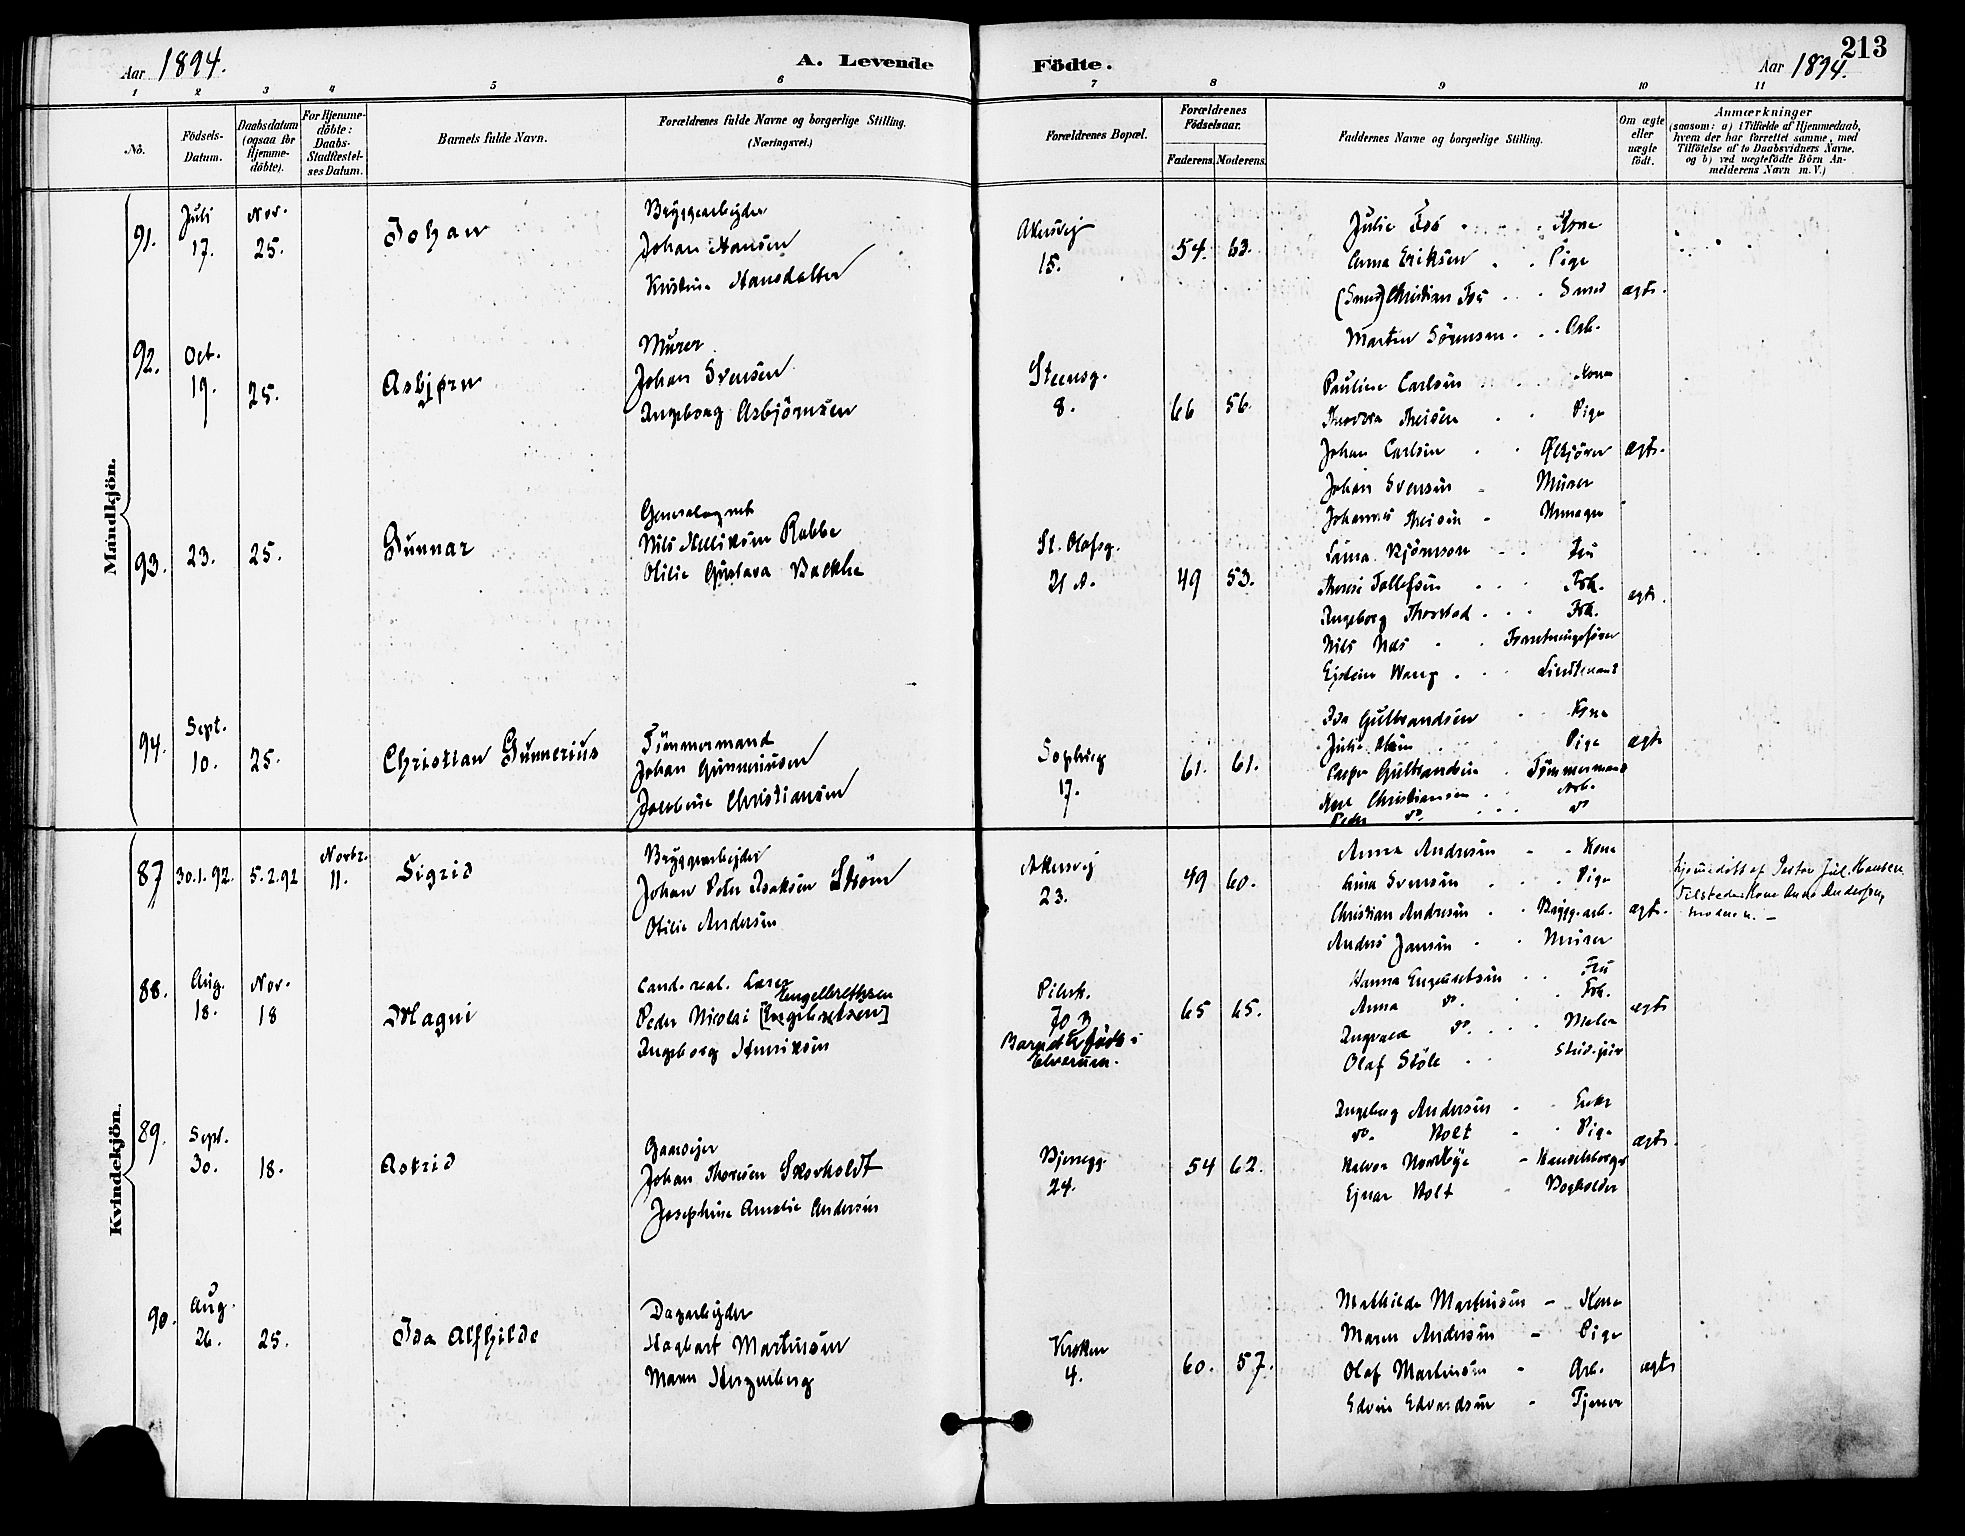 213
Aar 1894.
A. Levende Födte.
Aar 1894.
1 2 3 4 5 6 7 8 9 10 11
No.
Födsels-Datum.
Daabsdatum (ogsaa for Hjemme-döbte).
For Hjemme-döbte: Daabs-Stadfæstel-ses Datum.
Barnets fulde Navn.
Forældrenes fulde Navne og borgerlige Stilling.
(Næringsvei.)
Forældrenes Bopæl.
Forældrenes Födselsaar.
Faderens. Moderens.
Faddernes Navne og borgerlige Stilling.
Om ægte eller uægte födt.
Anmærkninger
(saasom: a) i Tilfælde af Hjemmedaab, hvem der har forrettet samme, med Tilföielse af to Daabsvidners Navne, og b) ved uægtefödte Börn An-melderens Navn m. V.)
Mandkjön.
91.
Juli 17.
Nov. 25.
Johan
Bryggearbejder
Johan Hansen
Kristine Hansdatter
Akersvej 15.
54. 63.
Julie Foss Kone
Anna Eriksen Pige
(Smed) Christian Foss Smed
Martin Sörensen Arb.
ægte.
92.
Oct. 19.
25.
Asbjørn
Murer
Johan Svensen
Ingeborg Asbjörnsen
Steensg. 8.
66 56.
Pauline Carlsen Kone
Theodora Theisen Pige
Johan Carlsen Ølkjörer
Johan Svensen Murer
Johannes Theisen
ægte.
93.
23.
25.
Gunnar
Generalagent
Nils Rabbe
Otilie Gustava Backke
St. Olafsg. 21 A.
49 53.
Björnson Fru
Therese Tollefsen Frk.
Ingeborg Thorstad Frk.
Nils Næs Forretningsförer
Ejstein Wang Lieutenant
ægte.
94.
Sept. 10.
25.
Christian Gunnerius
Tömmermand
Johan Gunneriusen
Jacobine Christiansen
Sophieg 17.
61. 61.
Ida Gulbrandsen Kone
Julie Pige
Casper Gulbrandsen Tömmermand
Christiansen Arb.
Peder do. do
ægte
Kvindekjön.
87
30.1.92.
5.2.92
Novbr. 11.
Sigrid
Bryggearbejder
Johan Peter Isaksen Ström
Otilie Andersen
Akersvej 23.
49 60.
Anna Andresen Kone
Svensen Pige
Christian Andresen Brygg.arb.
Anders Jansen Murer
ægte.
hjemmedöbt af Pastor Jul. Hansen
Tilstede: Kone Anne Andersen,
moderen. —
88.
Aug. 18.
Nov. 18
Magni
Cand. real. Lærer
Engelbrethsen
Peder Nicolai [Engebretsen]
Ingeborg Henriksen
Pilestr. 70
Barnet födt i
Elverum.
65 65.
Hanna Engebretsen Fru
Anna do. Frk.
Ingvald do. Maler
Olaf Stöle Stud. jur
ægte
89.
Sept. 30.
18.
Astrid
Gaardejer
Johan Thoresen Skovholdt
Josephine Amalie Andersen
Bjerregg. 24.
54 62.
Ingeborg Andersen Enke
do. Holt Pige
Halvor Nordbye Handelsborger
Ejnar Holt Bogholder
ægte.
90.
Aug. 26.
25.
Ida Alfhilde
Dagarbejder
Hagbart Martinsen
Maren Herzenberg
Kroken 4.
60. 57.
Mathilde Martinsen Kone
Maren Andersen Pige
Olaf Martinsen Arb.
Edvin Edvardsen Tjener
ægte